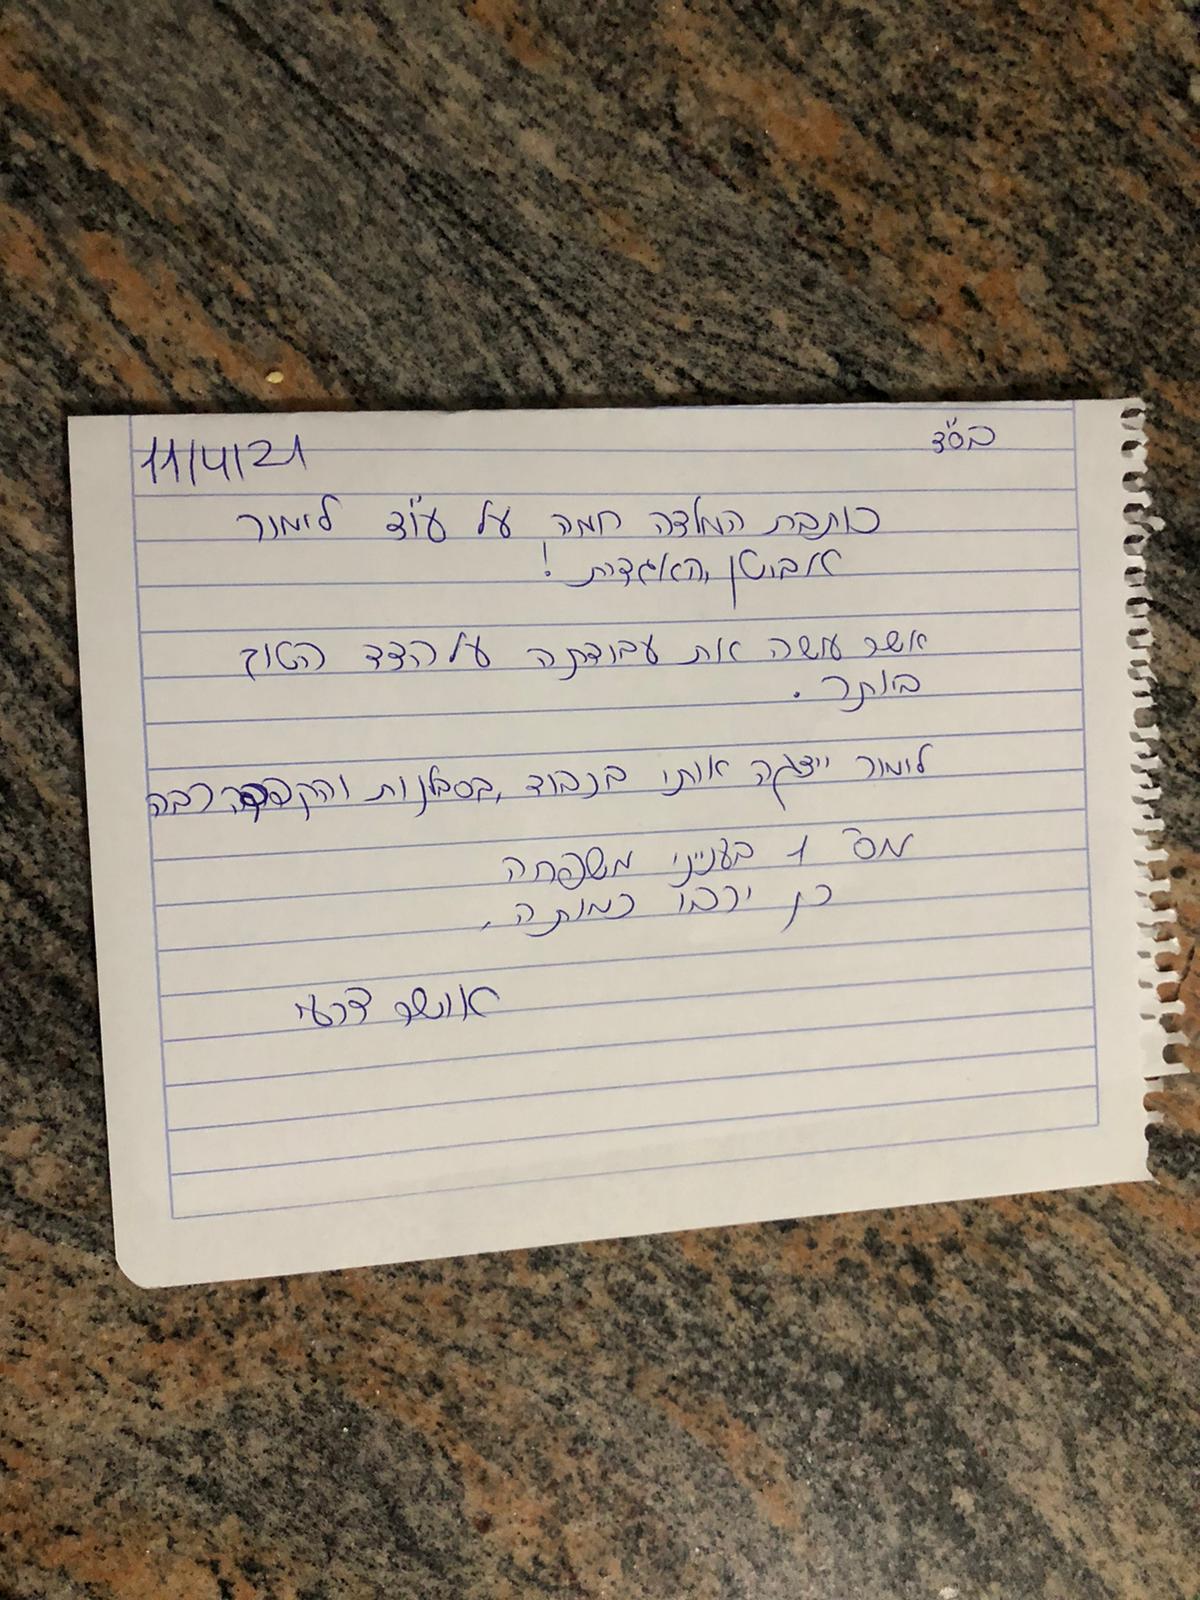 בס"ד
11/4/21
כותבת המלצה חמה על עו"ד לימור
אבוטן, האגדית!
אשר עושה את עבודתה על הצד הטוב
ביותר.
לימור ייצגה אותי בכבוד, בסבלנות והקפדה רבה
מס' 1 בענייני משפחה
כן ירבו כמותה.
אושר דרעי